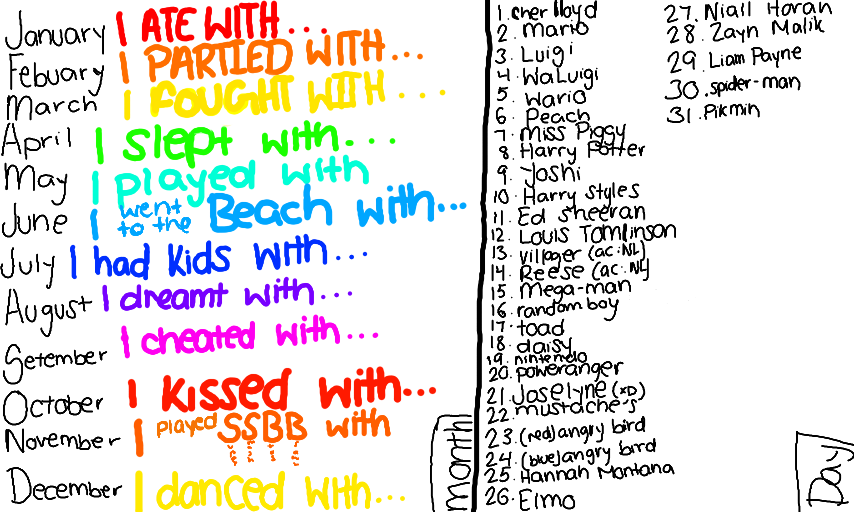 January I ATE WITH...
Febuary I PARTIED WITH...
March I FOUGHT WITH...
April I slept with...
May I played with
June I went to the Beach with...
July I had Kids with...
August I dreamt with...
Setember I cheated with...
October I Kissed with...
November I played SSBB with
December I danced with...
month
1. cher lloyd
2. Mario
3. Luigi
4. WaLuigi
5. Wario
6. Peach
7. Miss Piggy
8. Harry Potter
9. Yoshi
10. Harry Styles
11. Ed Sheeran
12. Louis Tomlinson
13. villager (ac:NL)
14. Reese (ac:NL)
15. Mega-man
16. random boy
17. toad
18. daisy
19. nintendo
20. poweranger
21. Joselyne (xD)
22. mustache's
23. (red) angry bird
24. (blue) angry bird
25. Hannah Montana
26. Elmo
27. Niall Horan
28. Zayn Malik
29. Liam Payne
30. spider-man
31. Pikmin
Day